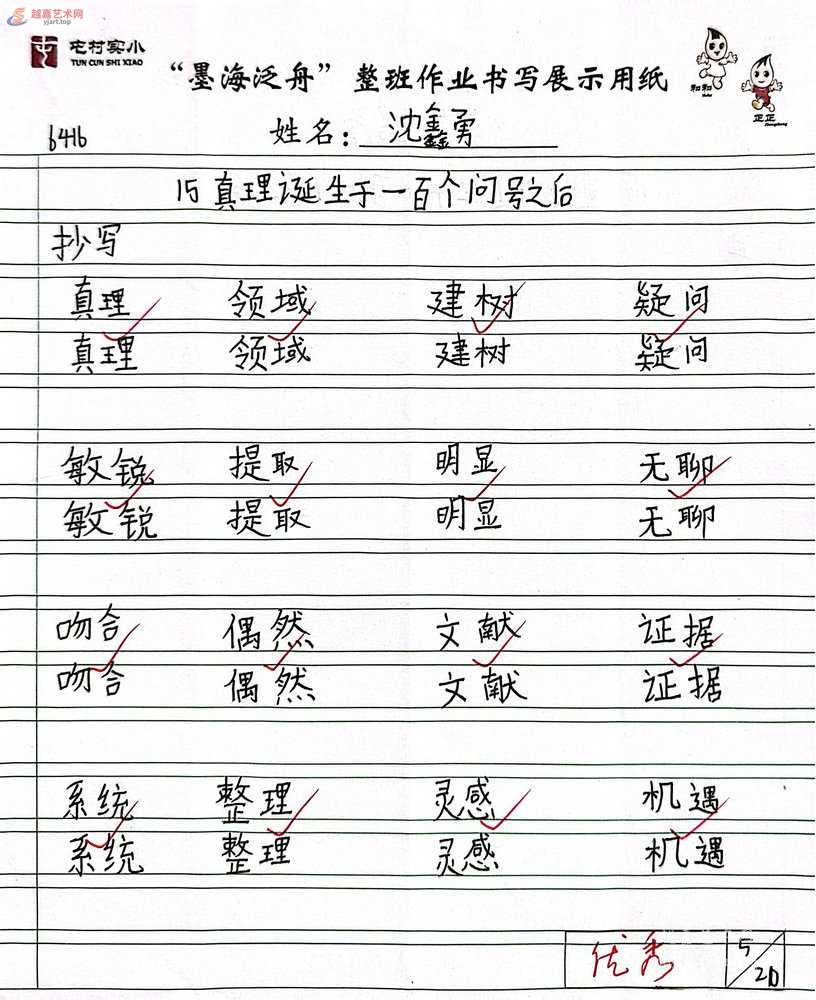 越嘉艺术网
yjart.top
屯村实小
TUN CUN SHI XIAO
“墨海泛舟”整班作业书写展示用纸
和和
正正
姓名：沈鑫勇
6416
15 真理诞生于一百个问号之后
抄写
真理 领域 建树 疑问
真理 领域 建树 疑问
敏锐 提取 明显 无聊
敏锐 提取 明显 无聊
吻合 偶然 文献 证据
吻合 偶然 文献 证据
系统 整理 灵感 机遇
系统 整理 灵感 机遇
优秀 5/20